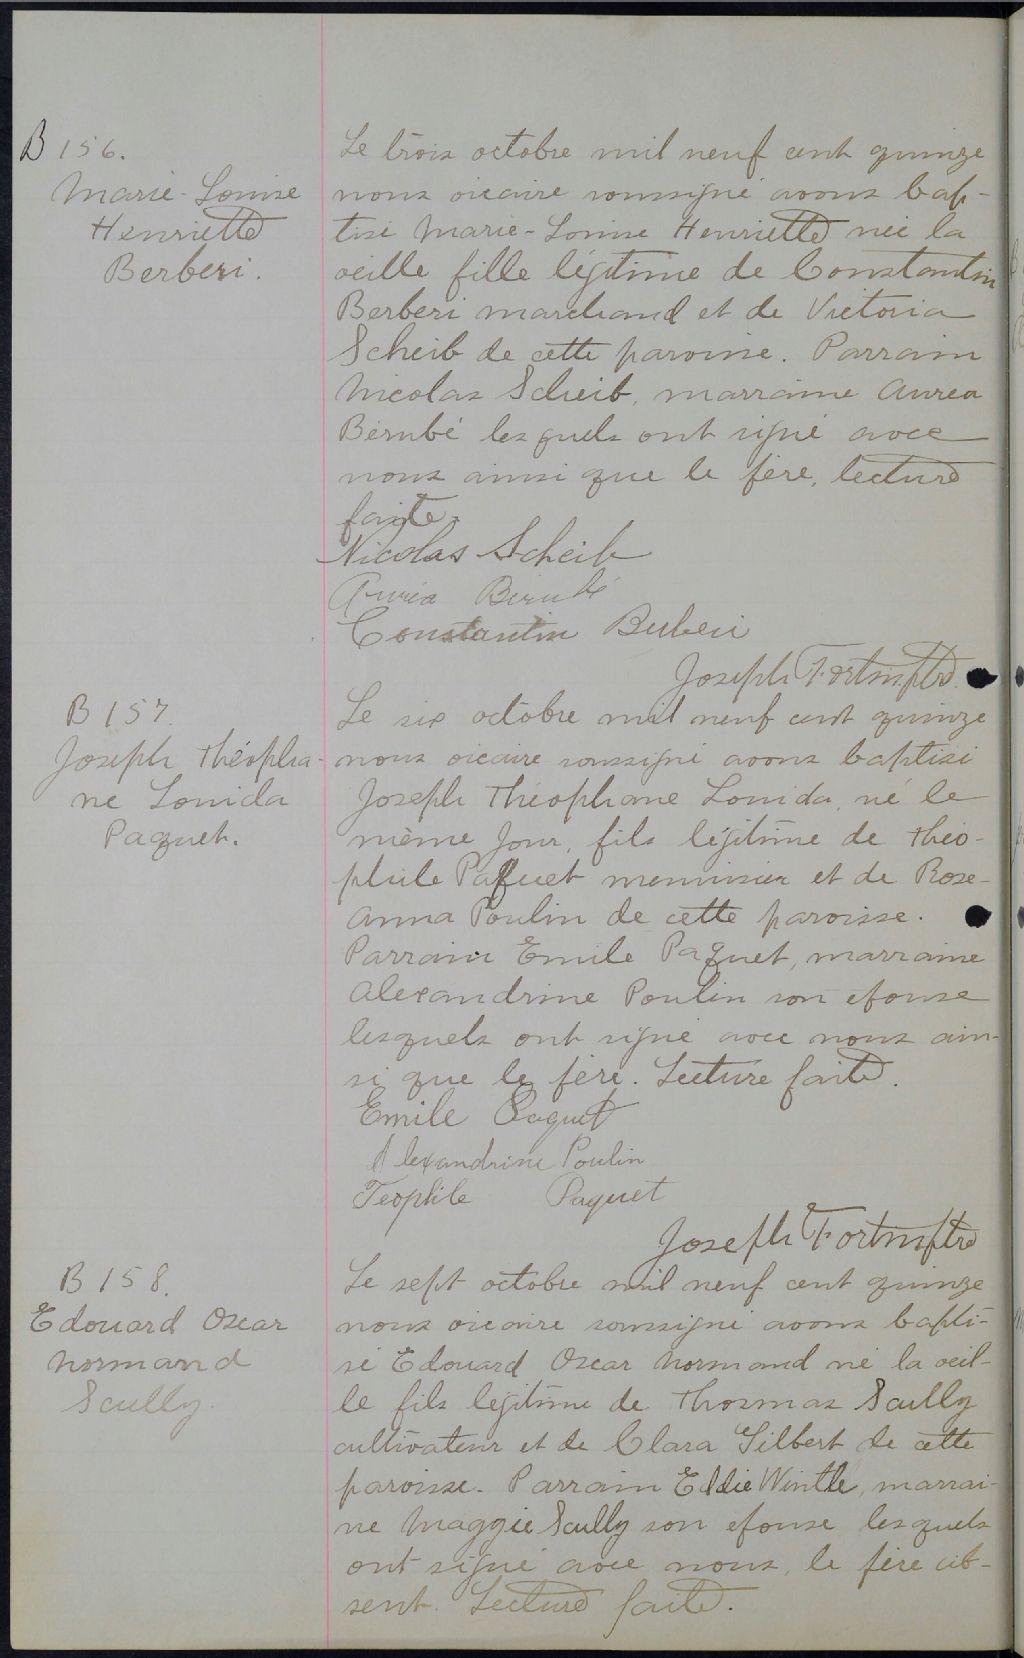 B 156.
Marie-Louise
Henriette
Berberi.
Le trois octobre mil neuf cent quinze
nous vicaire soussigné avons bap-
tisé Marie-Louise Henriette née la
veille fille légitime de Constantin
Berberi marchand et de Victoria
Scheib de cette paroisse. Parrain
Nicolas Scheib, marraine Aurea
Bérubé lesquels ont signé avec
nous ainsi que le père, lecture
faite.
Nicolas Scheib
Auréa Bérubé
Constantin Berberi
Joseph Fortin ptre
B 157.
Joseph Théopha-
ne Louida
Paquet.
Le six octobre mil neuf cent quinze
nous vicaire soussigné avons baptisé
Joseph Théophane Louida, né le
même jour, fils légitime de Théo-
phile Paquet menuisier et de Rose-
Anna Poulin de cette paroisse.
Parrain Emile Paquet, marraine
Alexandrine Poulin son épouse
lesquels ont signé avec nous ain-
si que le père. Lecture faite.
Emile Paquet
Alexandrine Poulin
Teophile Paquet
Joseph Fortin ptre
B 158.
Edouard Oscar
Normand
Scully.
Le sept octobre mil neuf cent quinze
nous vicaire soussigné avons bapti-
sé Edouard Oscar Normand né la veil-
le fils légitime de Thosmas Scully
cultivateur et de Clara Gilbert de cette
paroisse. Parrain Eddie Wintle, marrai-
ne Maggie Scully son épouse lesquels
ont signé avec nous, le père ab-
sent. Lecture faite.